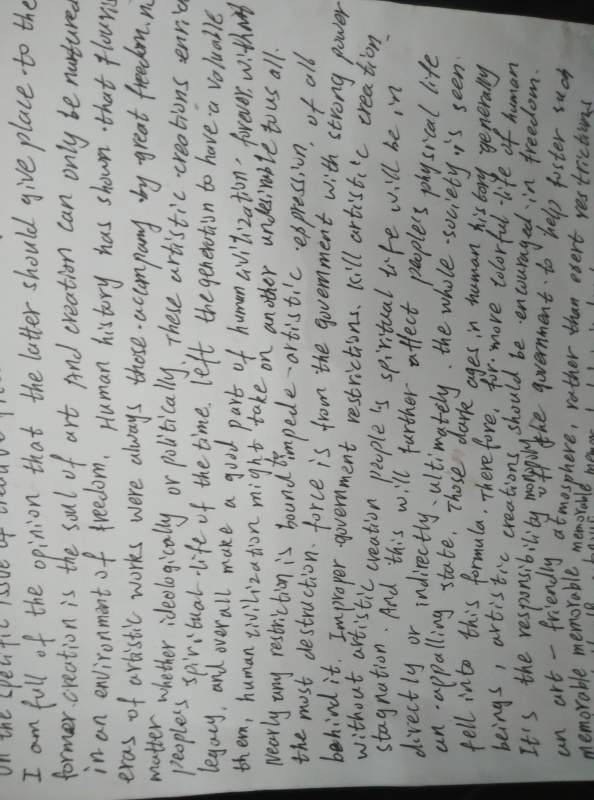 On the specific issue of creative
I am full of the opinion that the latter should give place to the
former. creation is the soul of art And creation can only be nurtured
in an environment of freedom. Human history has shown that flouris
eras of artistic works were always those accompany by great freedom, n
matter whether ideologically or politically, These artistic creations enric
peoples spiritual life of the time. left the generation to have a valuable
legacy, and overall make a good part of human civilization forever without
them, human civilization might take on another undesirable to us all.
Nearly any restriction is bound to impede artistic expression, of all
the most destruction force is from the government with strong power
behind it. Improper government restrictions. Kill artistic creation
without artistic creation people's spiritual life will be in
stagnation. And this will further affect people's physical life
directly or indirectly ultimately the whole society is seen
un appalling state. Those dark ages in human history generally
fell into this formula. Therefore, for more colorful life of human
beings, artistic creations should be encouraged in freedom.
It's the responsibility off the government to help foster such
an art - friendly atmosphere, rather than exert restrictions
memorable memorable memorable